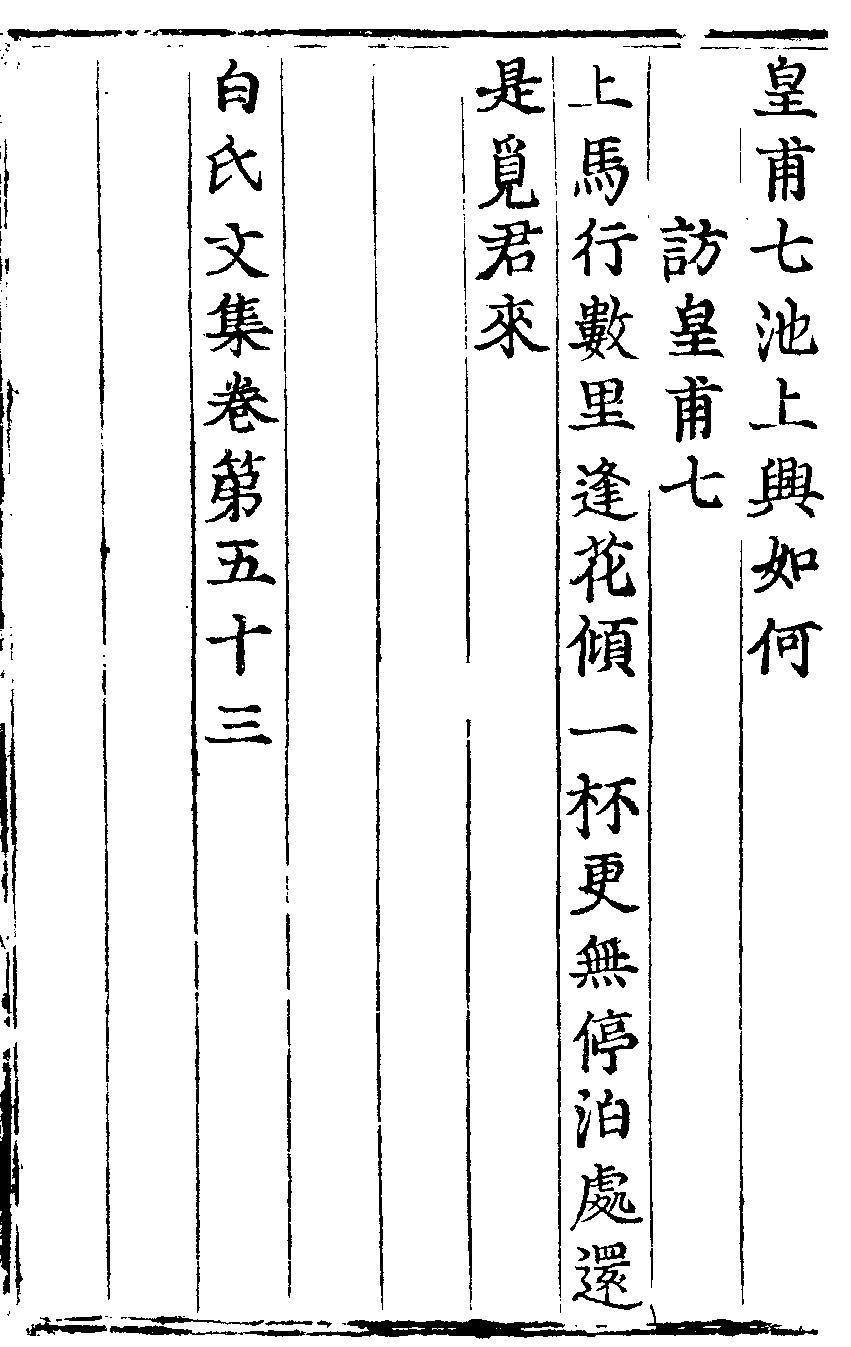 皇甫七池上興如何
訪皇甫七
上馬行數里逢花傾一杯更無停泊處還
是覓君來
白氏文集卷第五十三